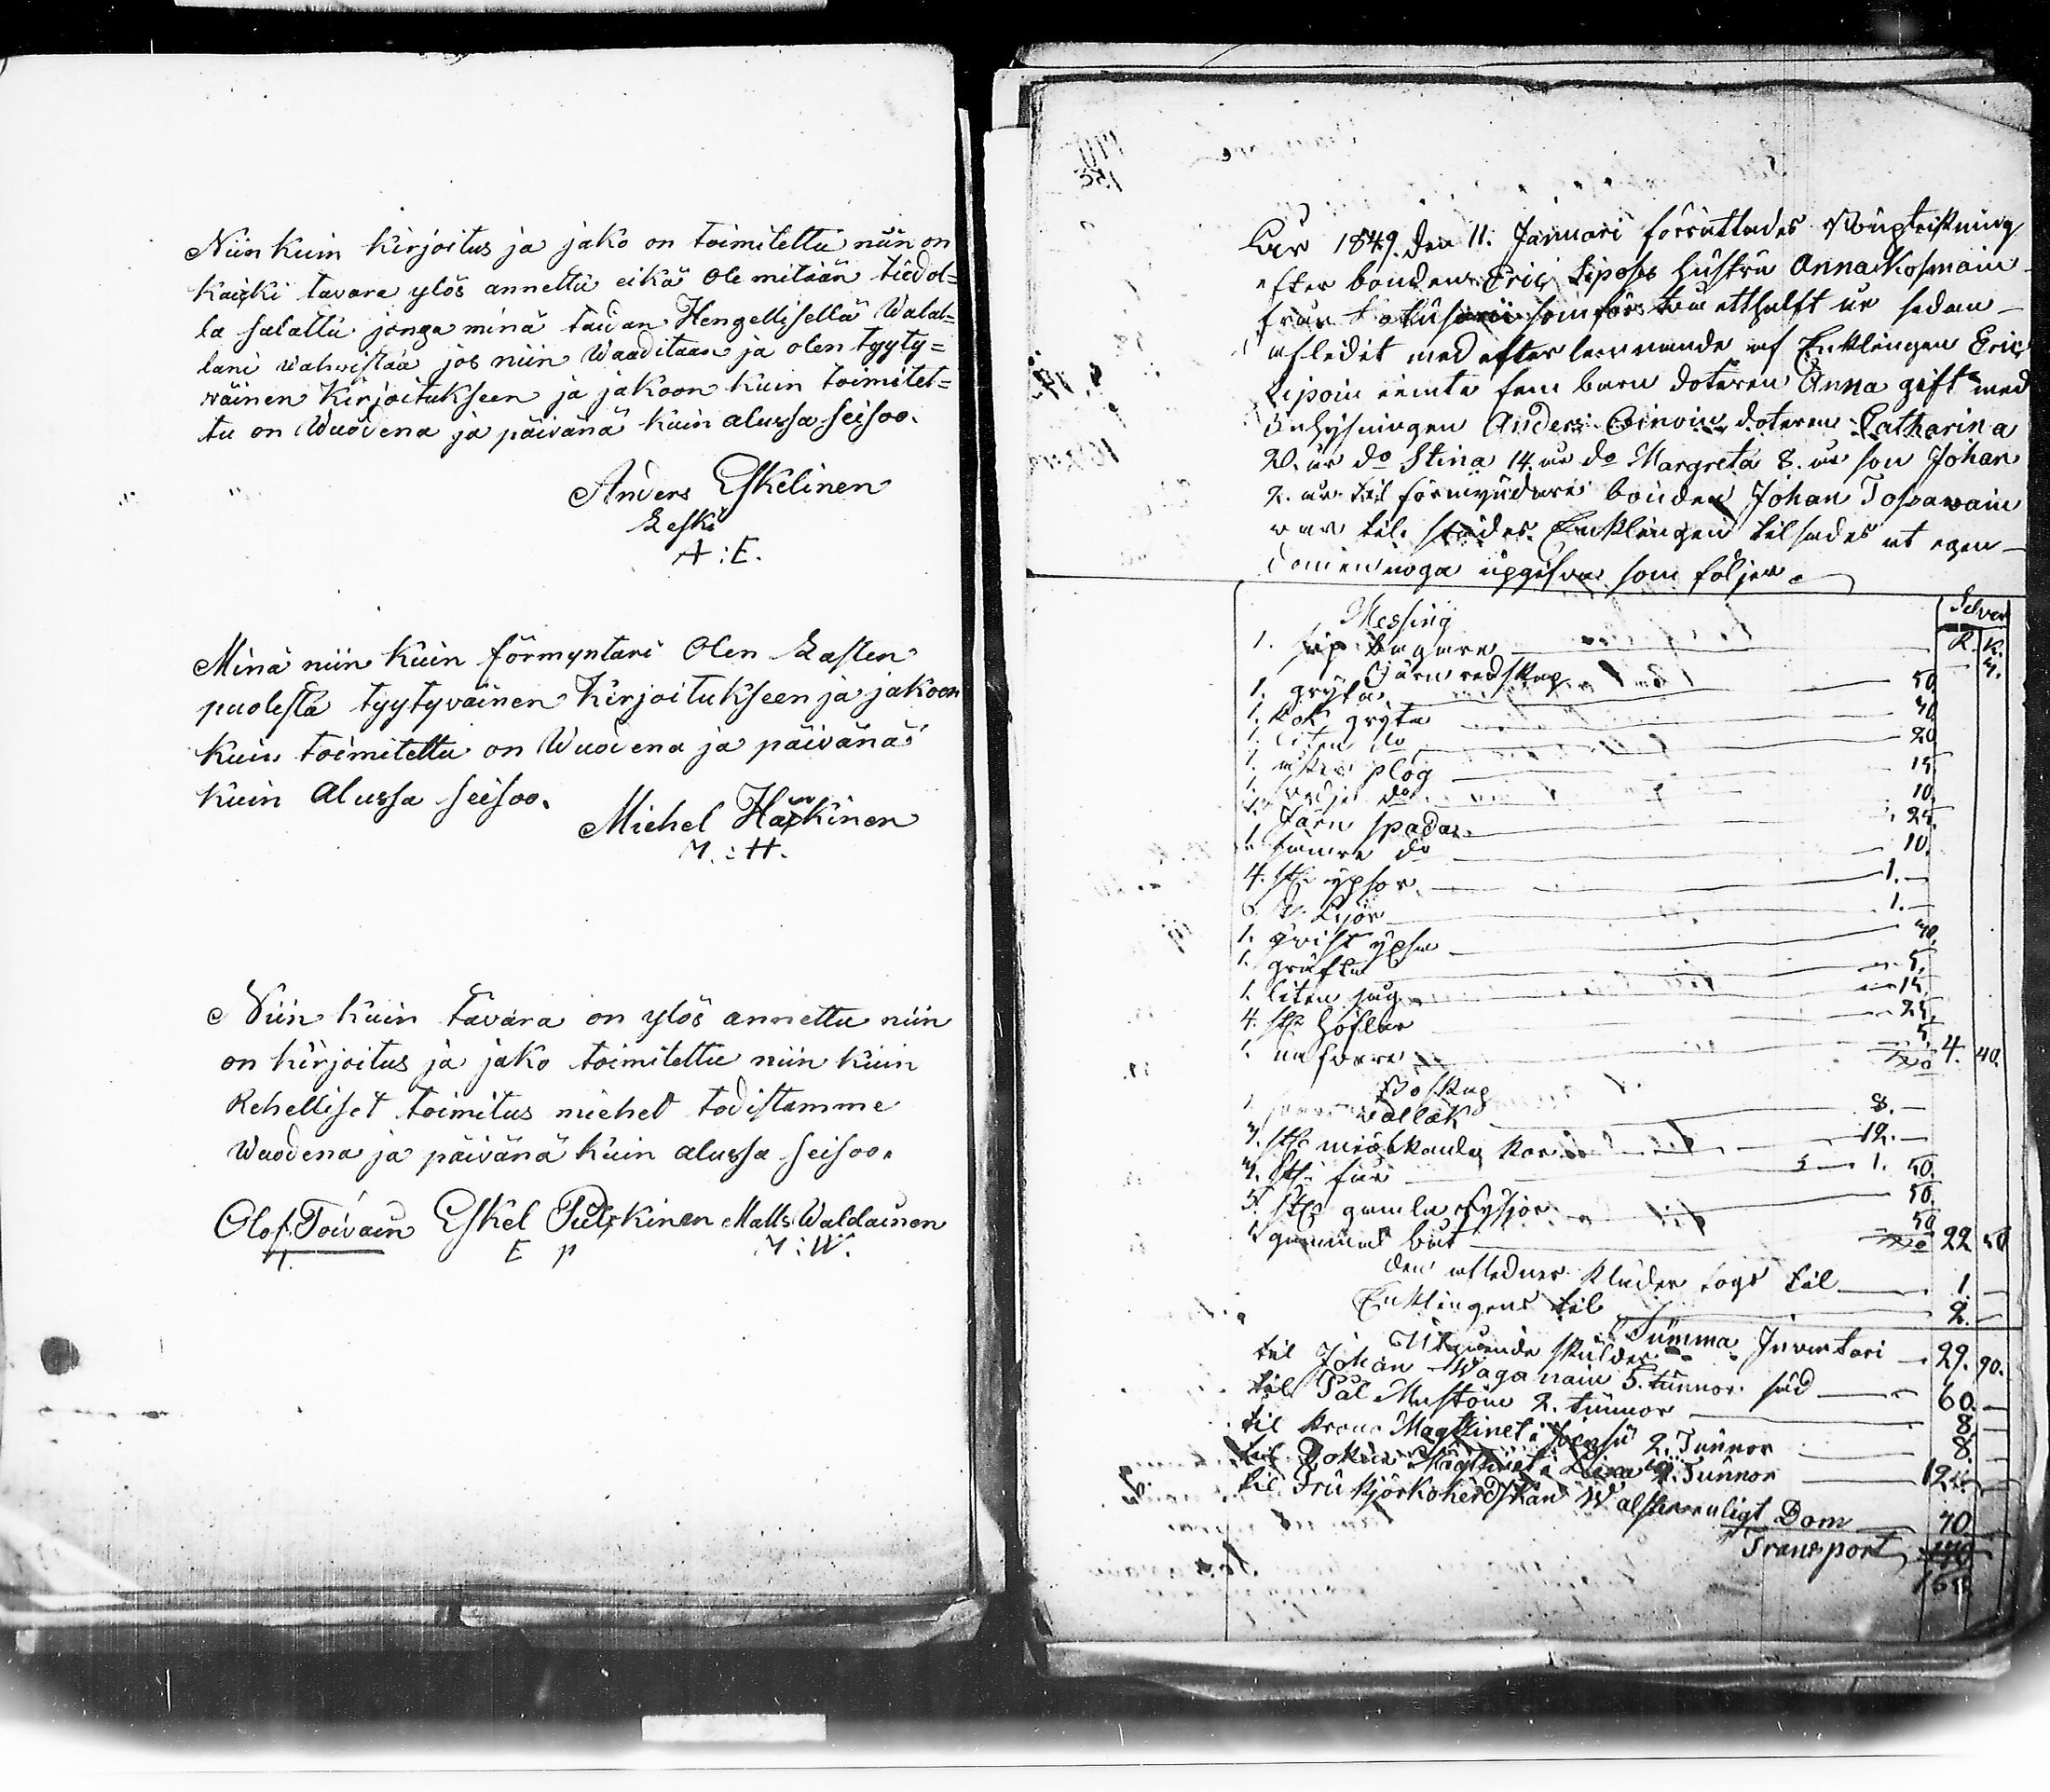 Niin kuin kirjoitus ja jako on toimitettu niin on
kaicki tavara ylös annettu eikä ole mitään tiedol=
la salattu jonga minä taidan Hengellisellä Walal=
lani wahwistaa jos niin Waaditaan ja olen tyyty=
wäinen Kirjoitukseen ja jakoon kuin toimitet=
tu on Wuodena ja päivänä kuin alussa seisoo.
Anders Eskelinen
Leski
A:E.
Minä niin kuin förmyntäri olen Lasten
puolesta tyytyväinen Kirjoitukseen ja jakoon
kuin toimitettu on Wuodena ja päivänä
kuin alussa seisoo.
Michel Häckinen
M.:H.
Niin kuin tavara on ylös annettu niin
on kirjoitus ja jako toimitettu niin kuin
Rehelliset toimitus miehet todistamme
Wuodena ja päivänä kuin alussa seisoo.
Olof Toivain Eskel Pulckinen Matts Waldainen
E P M:W.
År 1849. den 11. Januari förrättades Boupteckning
efter bonden Eric Liposs hustru Anna Kosonain
från som för ett halft år sedan
afledit med efterlemnande af Enklingen Eric
Lipoin jemte fem barn doteren Anna gift med
inhysningen Anders Oinoin doteren Catharina
20. år do Stina 14. år do Margreta 8. år son Johan
2. år til förmyndare bonden Johan Tossavain
var til städes. Enklingen tilsades at egen-
domen noga upgifva som följer.
Selver
Messing
R. K.
1. sup bägare 4.
Järn redskap
1. gryta 50.
1. kok gryta 40.
1. liten do 20
1. åker plog 15.
1. svedje do 10.
2. Järn spadar 25.
1. sämre do 10.
4. st: yxor 1.
6. st: Lijor 1.
1. qvist yxa 40.
1. gräfta 5.
1. liten såg 15.
4. st: höflar 25.
1. nafvare 5. 4. 40.
Boskap
1. vallak 8.
3. st: miölkande kor 12.
3. st: får 1. 50.
5. st: gamla ryssjor 50.
1 gammal båt 50 22 50
den aflednes kläder togs til 1.
Enklingens til 2.
Summa Inventari 29. 90.
Utgående skulder
til Johan Waganain 5. tunnor säd 60.
til Pål Mustoin 2. tunnor 8.
til krono Magzinet i 2. Tunnor 8.
til Sokne Magzinet i Tunnor 12
til Fru Kjörkoherdskan W Dom 70
Transport